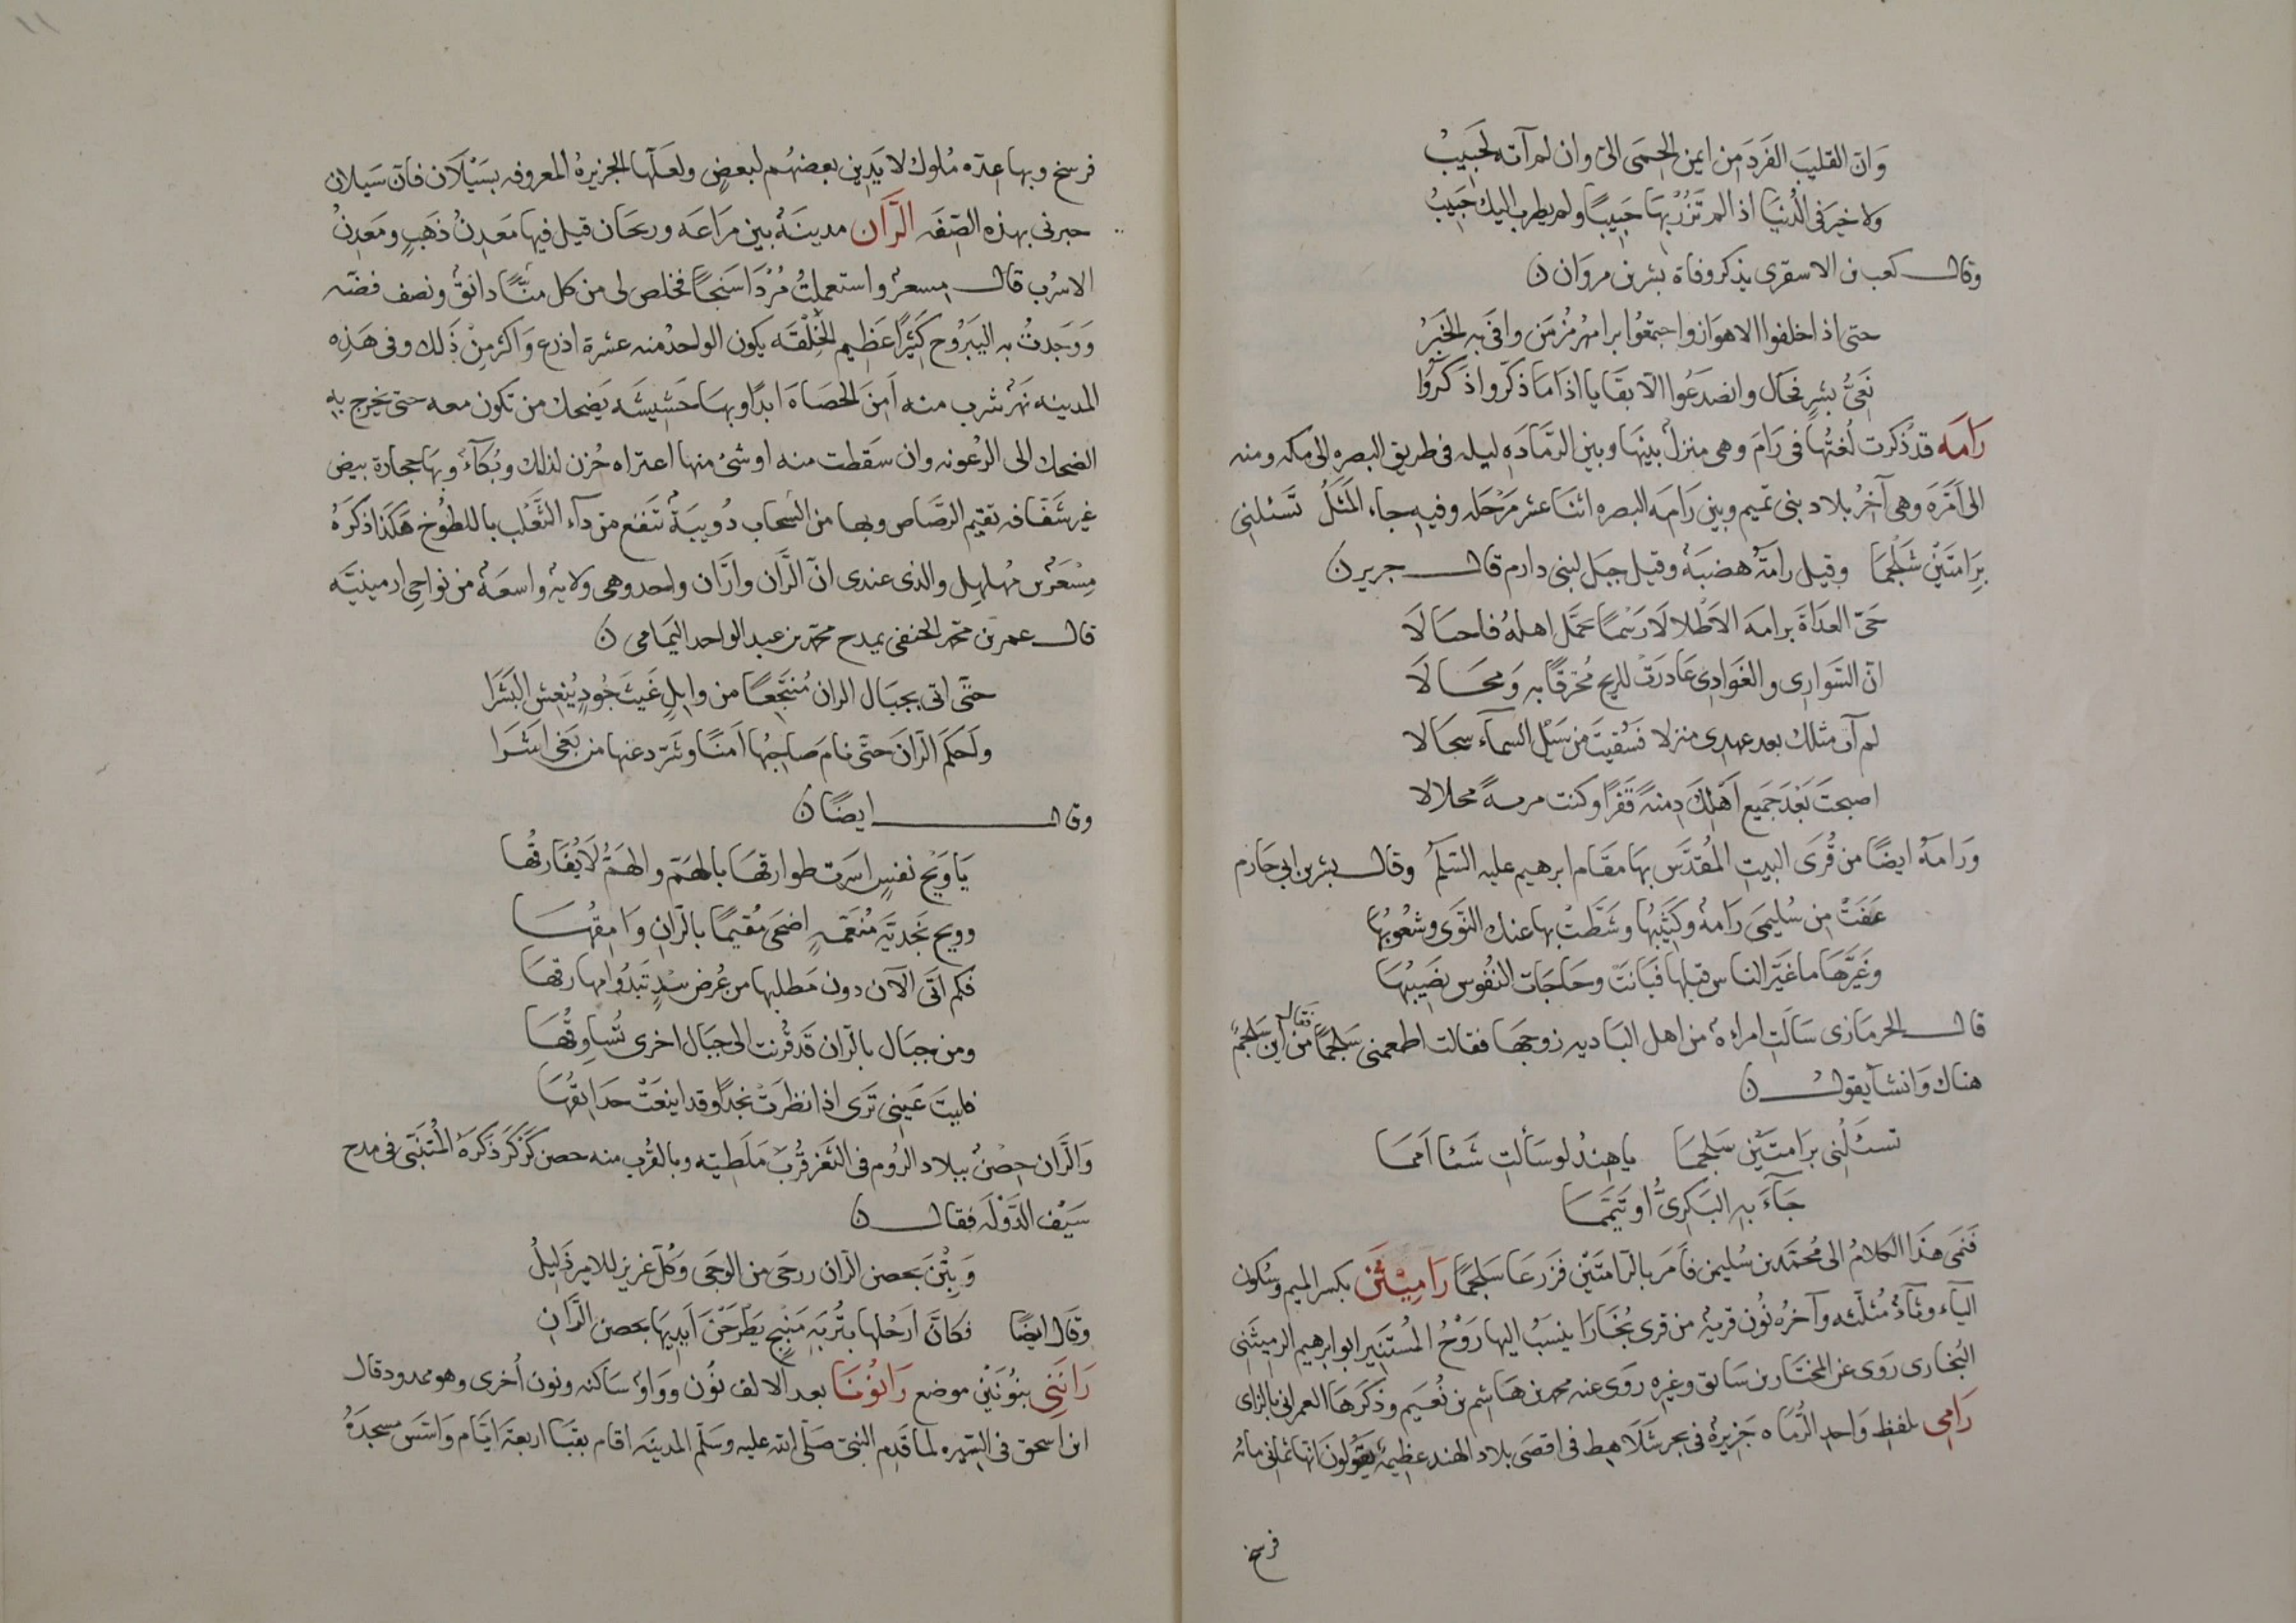 وَانّ القليبَ الفَردَ من ايمن الحِمَى الىّ وان لم آته لَحَبِيبُ
ولا خيرَ فى الدُّنيَا اذا لم تَزُرْ بِهَا حَبِيبًا ولم يطرب اليك حَبِيبُ
وقال كعب بن الاسقرى يذكر وفاة بشر بن مروان
حتى اذا خلفوا الاهواز واجتمعُوا برامهرمُز من وافى به الخَبَرُ
نَعِىُّ بشرٍ فحَال وانصدَعُوا الّا بقَايا اذا مَا ذكّروا ذَكَرُوا
رَامَه قد ذكرت لُغتُها فى رَامَ وهى منزلٌ بينَها وبين الرَّمَادَه ليله فى طريق البصره الى مكه ومنه
الى اَمَّرَة وهى آخرُ بلاد بنى تميم وبين رَامَه البصره اثنَا عشر مَرْحَله وفيه جاء المَثَلُ تَسئلنى
بِرَامتَيْنِ شَلْجَمَا وقيل رامَةُ هضبَةٌ وقيل جبَل لبنى دارم قال جرير
حَىّ الغدَاةَ برامَه الاَطْلالَا رَسْمًا تحَمَّل اهلهُ فاحَالَا
انّ السَّوارِى والغَوَادِى غَادرَتْ للريح مُخترَقًا به وَمجَالَا
لم اَر مثلك بعد عهدى منزلا فسُقِيتَ من سَبَل السمآء سجَالا
اصبحتَ بَعْدَ جَميع اَهْلِكَ دِمنةً قَفْرًا وكنت مربةً محلالا
وَرامَهُ ايضًا من قُرَى البيت المُقدَّس بهَا مقَام ابرهيم عليه السّلمُ وقال بشر بن ابى حازم
عَفَتْ من سُليمَى رَامهُ وكَثِيبُها وشَطَّتْ بها عنك النَّوَى وشعُوبُها
وغَيَّرَهَا ما غَيَّر الناس قبلها فَبَانَتْ وحَاجَات النُفُوس نصِيبُهَا
قال الحرمَازى سَالَتِ امراة من اهل البَاديه زوجَهَا فقالت اطعمنى سَلجمًا فقال من اين سَلجمٌ
هناك وَانشأ يقول
تسئَلُنى برَامتَيْن سَلجمَا يا هِندُ لو سَألتِ شيئا اَممَا
جَآءَ بهِ البَكرِىُّ او تَيَمَّمَا
فَنمَى هذَا الكلامُ الى مُحمّد بن سُليمن فاَمَر بالرّامتَيْن فَزرعَا سَلجمًا رَامِيْثَن بكسر الميم وسُكون
اليآء وثاءٌ مُثلّثه وآخرُهُ نُون قريةٌ من قرى بُخَارَا ينسَبُ اليها رَوْحُ المُستَنِير ابو ابرهيم الرميثَنِى
البُخارى رَوَى عن المختَار بن سَابق وغيرِه رَوَى عنه محمد بن هَاشِم بن نُعَيم وذكرَهَا العمرانى بالزاى
رَامِى بلفظ وَاحِد الرُّمَاه جَزيرةٌ فى بحر شَلَاهِط فى اقصَى بلاد الهند عظيمهٌ يقولونَ انّها ثمانى مائه
فرسخ
فرسخ وبها عِدّه مُلوك لا يَدِين بعضهُم لبعضٍ ولعَلّها الجزيرةُ المعروفه بسَيْلَان فانّ سَيلان
خبرنى بهذه الصِفَه الرَّان مدينَةٌ بين مَراغَه وزنجَان قيل فيها مَعدِنُ ذَهَبٍ ومَعْدِنُ
الاسْرُب قال مِسعرٌ واستعملتُ مُرْدَاسَنجًا فخلص لى من كل مَنًّا دانقٌ ونصف فضّه
وَوَجَدتُ به اليَبَرُوح كَثِيرًا عَظِيم الخِلْقَه يكون الواحدُ منه عشرة اذرع وَاكثر مِنْ ذَلك وفى هَذِه
المدينه نَهرٌ شرب منه اَمِنَ الحصَاة ابدًا وبهَا حَشِيشَه يَضحك من تكون معه حتى يخرج به
الضحك الى الرعُونه وان سَقطت منه او شئٌ منها اعتراه حُزن لذلك وبُكآءٌ وبهَا حجارة بيض
غير شَفّافه تقيم الرصَاص وبها من السّحاب دُوَيبَةٌ تنفع من دآء الثَّعلب باللطُوخ هَكذا ذكرَهُ
مِسْعَرُ بن مُهلهِل والذى عندى انّ الرَّان وارَّان واحد وهى ولايةٌ واسعَهٌ من نواحِى ارمينيَه
قال عمر بن محمّد الحنفى يمدح محمّد بن عبد الواحد اليَمَامى
حتَّى اتى بجبَال الران مُنتَجِعًا من وابِلٍ غَيث جُودٍ يُنعِش البَشَرَا
ولَحكم الرّانَ حتَّى نامَ صَاحِبُها اَمنًا وشَرّد عنها من بَغى اَشَرَا
وقال ايضًا
يَا وَيْح نفسٍ اسَرت طوارقهَا بالهَمّ والهَمُّ لَا يُفَارقُها
وويح نجديّه مُنعَّمهٍ اضحَى مُقيمًا بالرّانِ وَامِقُهَا
فكم اتَى الآن دون مَطلبها من عُرض بيدٍ تَبدُوا مهارقهَا
ومن جبَال بالرّان قَد قُرنت الى جبَال اخرى تُسَاوِقُهَا
فليتَ عَينِى تَرى اذا نظرتْ نَجدًا وقد اينعَتْ حدَائِقُها
وَالرّان حِصْنٌ ببلاد الرُوم فى الثغر قُربَ مَلَطيَه وبالقُرب منه حصن كَرْكَر ذكَرَهُ المُتنَبِّى فى مدح
سَيْف الدَّوْلَه فقال
وَبِتْنَ بحصن الرّان رزحَى من الوجَى وكُلّ عزيز للامير ذَلِيلُ
وقال ايضًا فكانَّ ارَجُلها بتُربَهِ مَنْبِجٍ يَطْرَحْنَ اَيديَهَا بحصن الرَّانِ
رَانَنِى بنُونَيْن موضع رَانُوْنَا بعد الالف نُون ووَاوٌ سَاكنه ونون اُخرى وهو ممدود قال
ابن اسحق فى السِّيَره لما قَدِم النبىّ صَلّى الله عليه وسَلّم المدينَه اقام بقبَا اربعة ايّام وَاسَّسَ مسجدَهُ